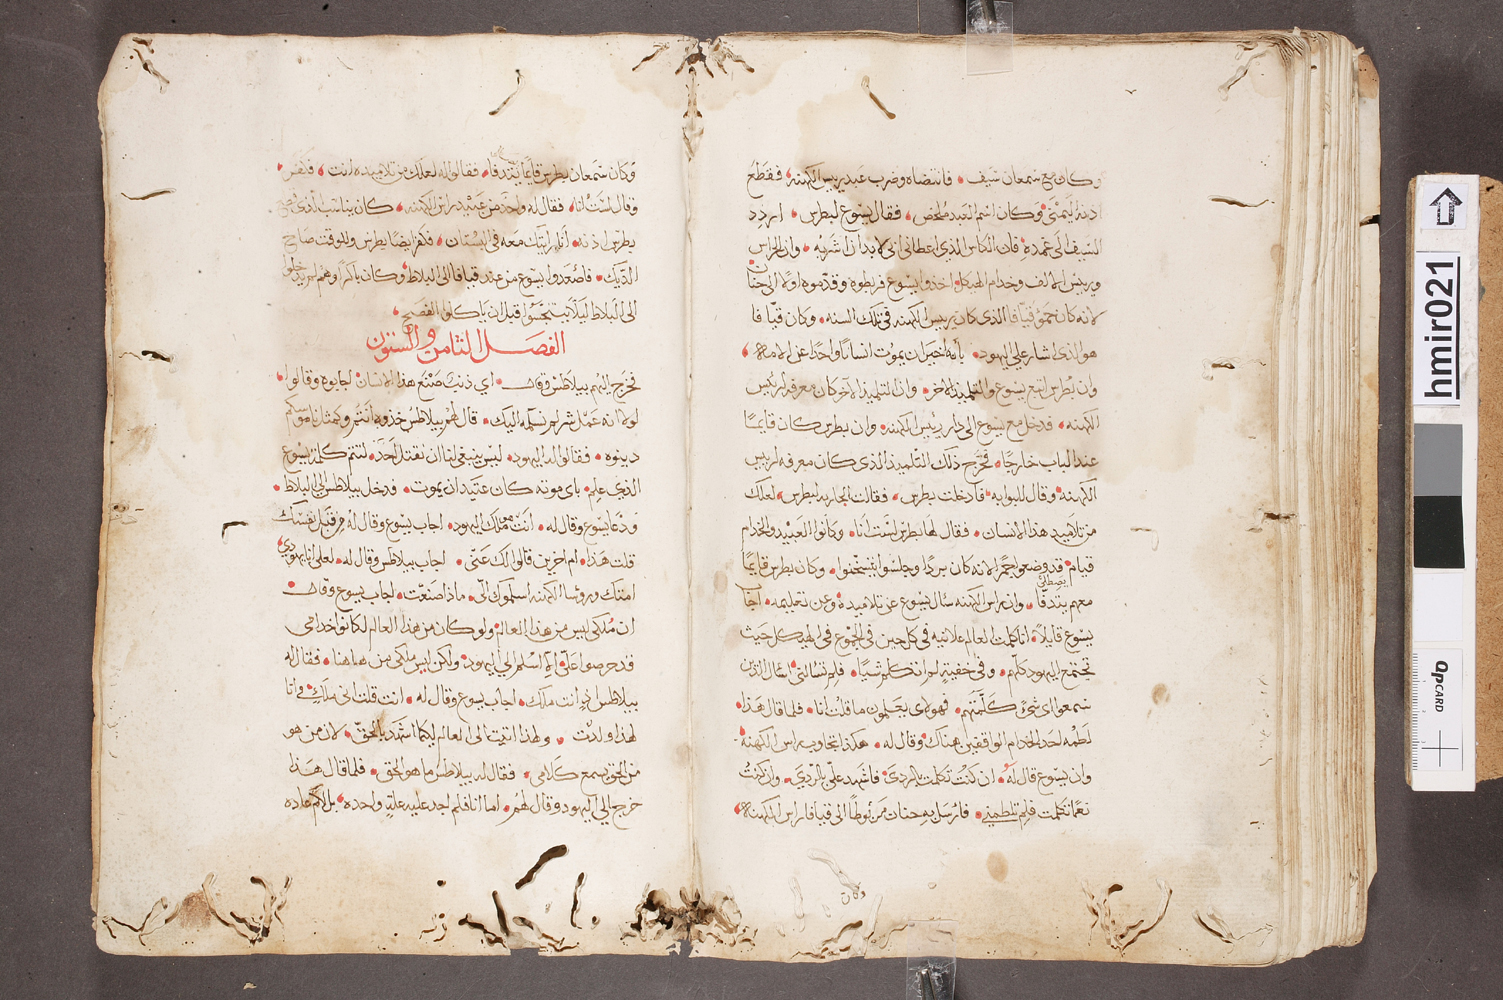 وكان مع سمعان سيف فانتضاه وضرب عبد رييس الكهنه فقطع
اذنه اليمنى وكان اسم العبد ملخس فقال يسوع لبطرس اردد
السيف الى غمده فان الكاس الذي اعطاني ابي لا بد ان اشربه وان الراس
ورييس الالف وخدام الهيكل اخذوا يسوع فربطوه وقدموه اولا الى حنان
لانه كان حمو قيافا الذي كان رييس الكهنه في تلك السنه وكان قيافا
هو الذي اشار على اليهود بأنه اخير ان يموت انسانا واحدا عن الامه
وان بطرس اتبع يسوع والتلميذ الاخر وان التلميذ الاخر كان معرفه لرييس
الكهنه فدخل مع يسوع الى دار رييس الكهنه وان بطرس كان قايما
عند الباب خارجا فخرج ذلك التلميذ الذي كان معرفه لرييس
الكهنه وقال للبوابه فادخلت بطرس فقالت الجاريه لبطرس لعلك
من تلاميذ هذا الانسان فقال لها بطرس لست انا وكانوا العبيد والخدام
قيام قد وضعوا جمرا لانه كان بردا وجلسوا يتسخنوا وكان بطرس قايما
يصطلي
معهم يتدفا وان راس الكهنه سال يسوع عن تلاميذه وعن تعليمه اجا
يسوع قايلا انا كلمت العالم علانيه في كل حين في الجموع في الهيكل حيث
تجتمع اليهود كلهم وفي خفيةٍ لم اتكلم شيا فلم تسالني اسال الذين
سمعوا اي شي كلمتهم فهولاي يعلمون ما قلت انا فلما قال هذا
لطمه احد الخدام الواقفين هناك وقال له هكذا تجاوب راس الكهنه
وان يسوع قال له ان كنت تكلمت بالردي فاشهد علي بالردي وان كنت
نعما تكلمت فلم تلطمني فارسل به حنان مربوطا الى قيافا راس الكهنه
وكان
وكان سمعان بطرس قايما يتدفا فقالوا له لعلك من تلاميذه انت فكفر
وقال لست انا فقال له واحد من عبيد رييس الكهنه كان يناسب الذي قطع
بطرس اذنه انا رايتك معه في البستان فكفر ايضا بطرس وللوقت صاح
الديك فاصعدوا يسوع من عند قيافا الى البلاط وكان باكرا وهم لم يدخلوا
الى البلاط ليلا يتنجسوا قبل ان ياكلوا الفصح
الفصل الثامن والستون
فخرج اليهم بيلاطس وقال اي ذنب صنع هذا الانسان اجابوه وقالوا
لولا انه عمل شرا لم نسلمه اليك قال لهم بيلاطس خذوه انتم وكمثل ناموسكم
دينوه فقالوا له اليهود ليس ينبغي لنا ان نقتل احد لتتم كلمة يسوع
الذي علم باي موته كان عتيد ان يموت فدخل بيلاطس الى البلاط
ودعا يسوع وقال له انت هو ملك اليهود اجاب يسوع وقال له من قبل نفسك
قلت هذا ام اخرين قالوا لك عني اجاب بيلاطس وقال له لعلي انا يهودي
امتك وروسا الكهنه اسلموك الي ماذا صنعت اجاب يسوع وقال
ان ملكي ليس من هذا العالم ولو كان من هذا العالم لكانوا خدامي
قد حرصوا علي الا اسلم الى اليهود ولكن ليس ملكي من هاهنا فقال له
بيلاطس اذن انت ملك اجاب يسوع وقال له انت قلت اني ملك وانا
لهذا ولدت ولهذا اتيت الى العالم ليكما اشهد بالحق لان من هو
من الحق يسمع كلامي فقال له بيلاطس ما هو الحق فلما قال هذا
خرج الى اليهود وقال لهم اما انا فلم اجد عليه علة واحده بل لكم عاده
hmir021
dpCARD